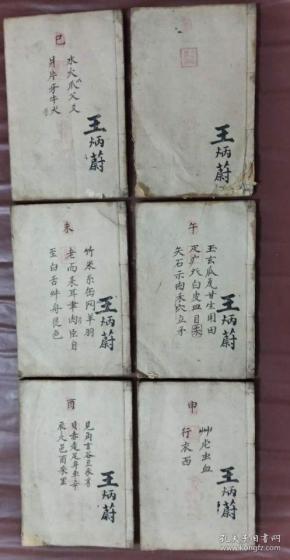 巳
水火爪父爻
爿片牙牛犬
王炳蔚
王炳蔚
未
竹米糸缶网羊羽
老而耒耳聿肉臣自
至臼舌舛舟艮色
王炳蔚
午
玉玄瓜瓦甘生用田
疋疒癶白皮皿目
矢石示肉禾穴立矛
王炳蔚
酉
見角言谷豆豕豸
貝赤走足身車辛
辰邑酉釆里
王炳蔚
申
艸虍虫血
行衣西
王炳蔚